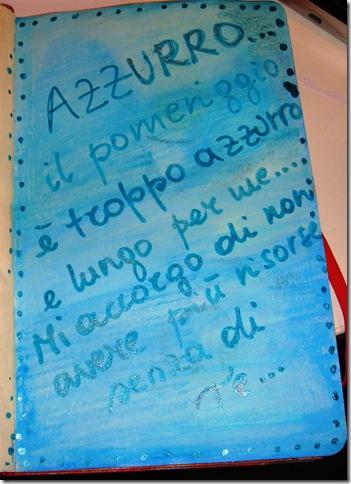 AZZURRO...
il pomeriggio
è troppo azzurro
e lungo per me....
Mi accorgo di non
avere più risorse
senza di
te...